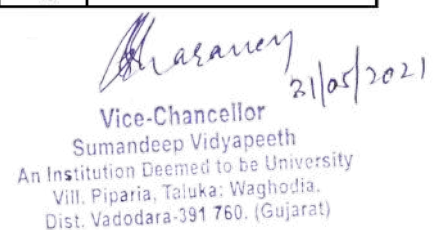 31/05/2021
Vice-Chancellor
Sumandeep Vidyapeeth
An Institution Deemed to be University
Vill. Piparia, Taluka: Waghodia,
Dist. Vadodara-391 760. (Gujarat)